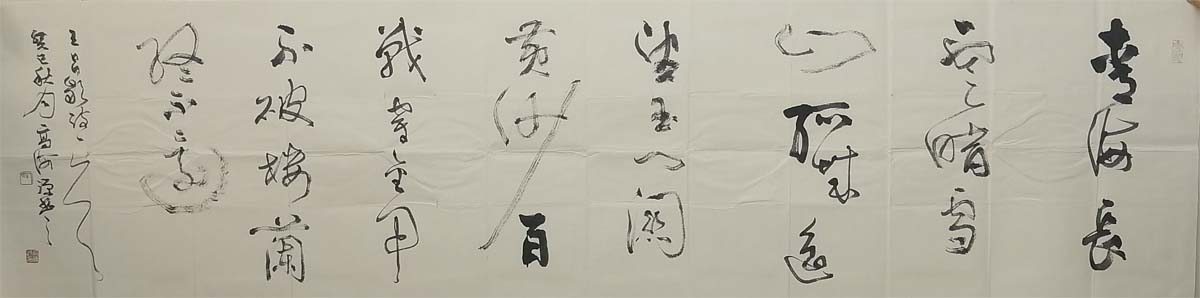 青海長
雲暗雪
山孤城遥
望玉门關
黄沙百
戰穿金甲
不破樓蘭
終不還
王昌齡詩
癸巳秋月高河